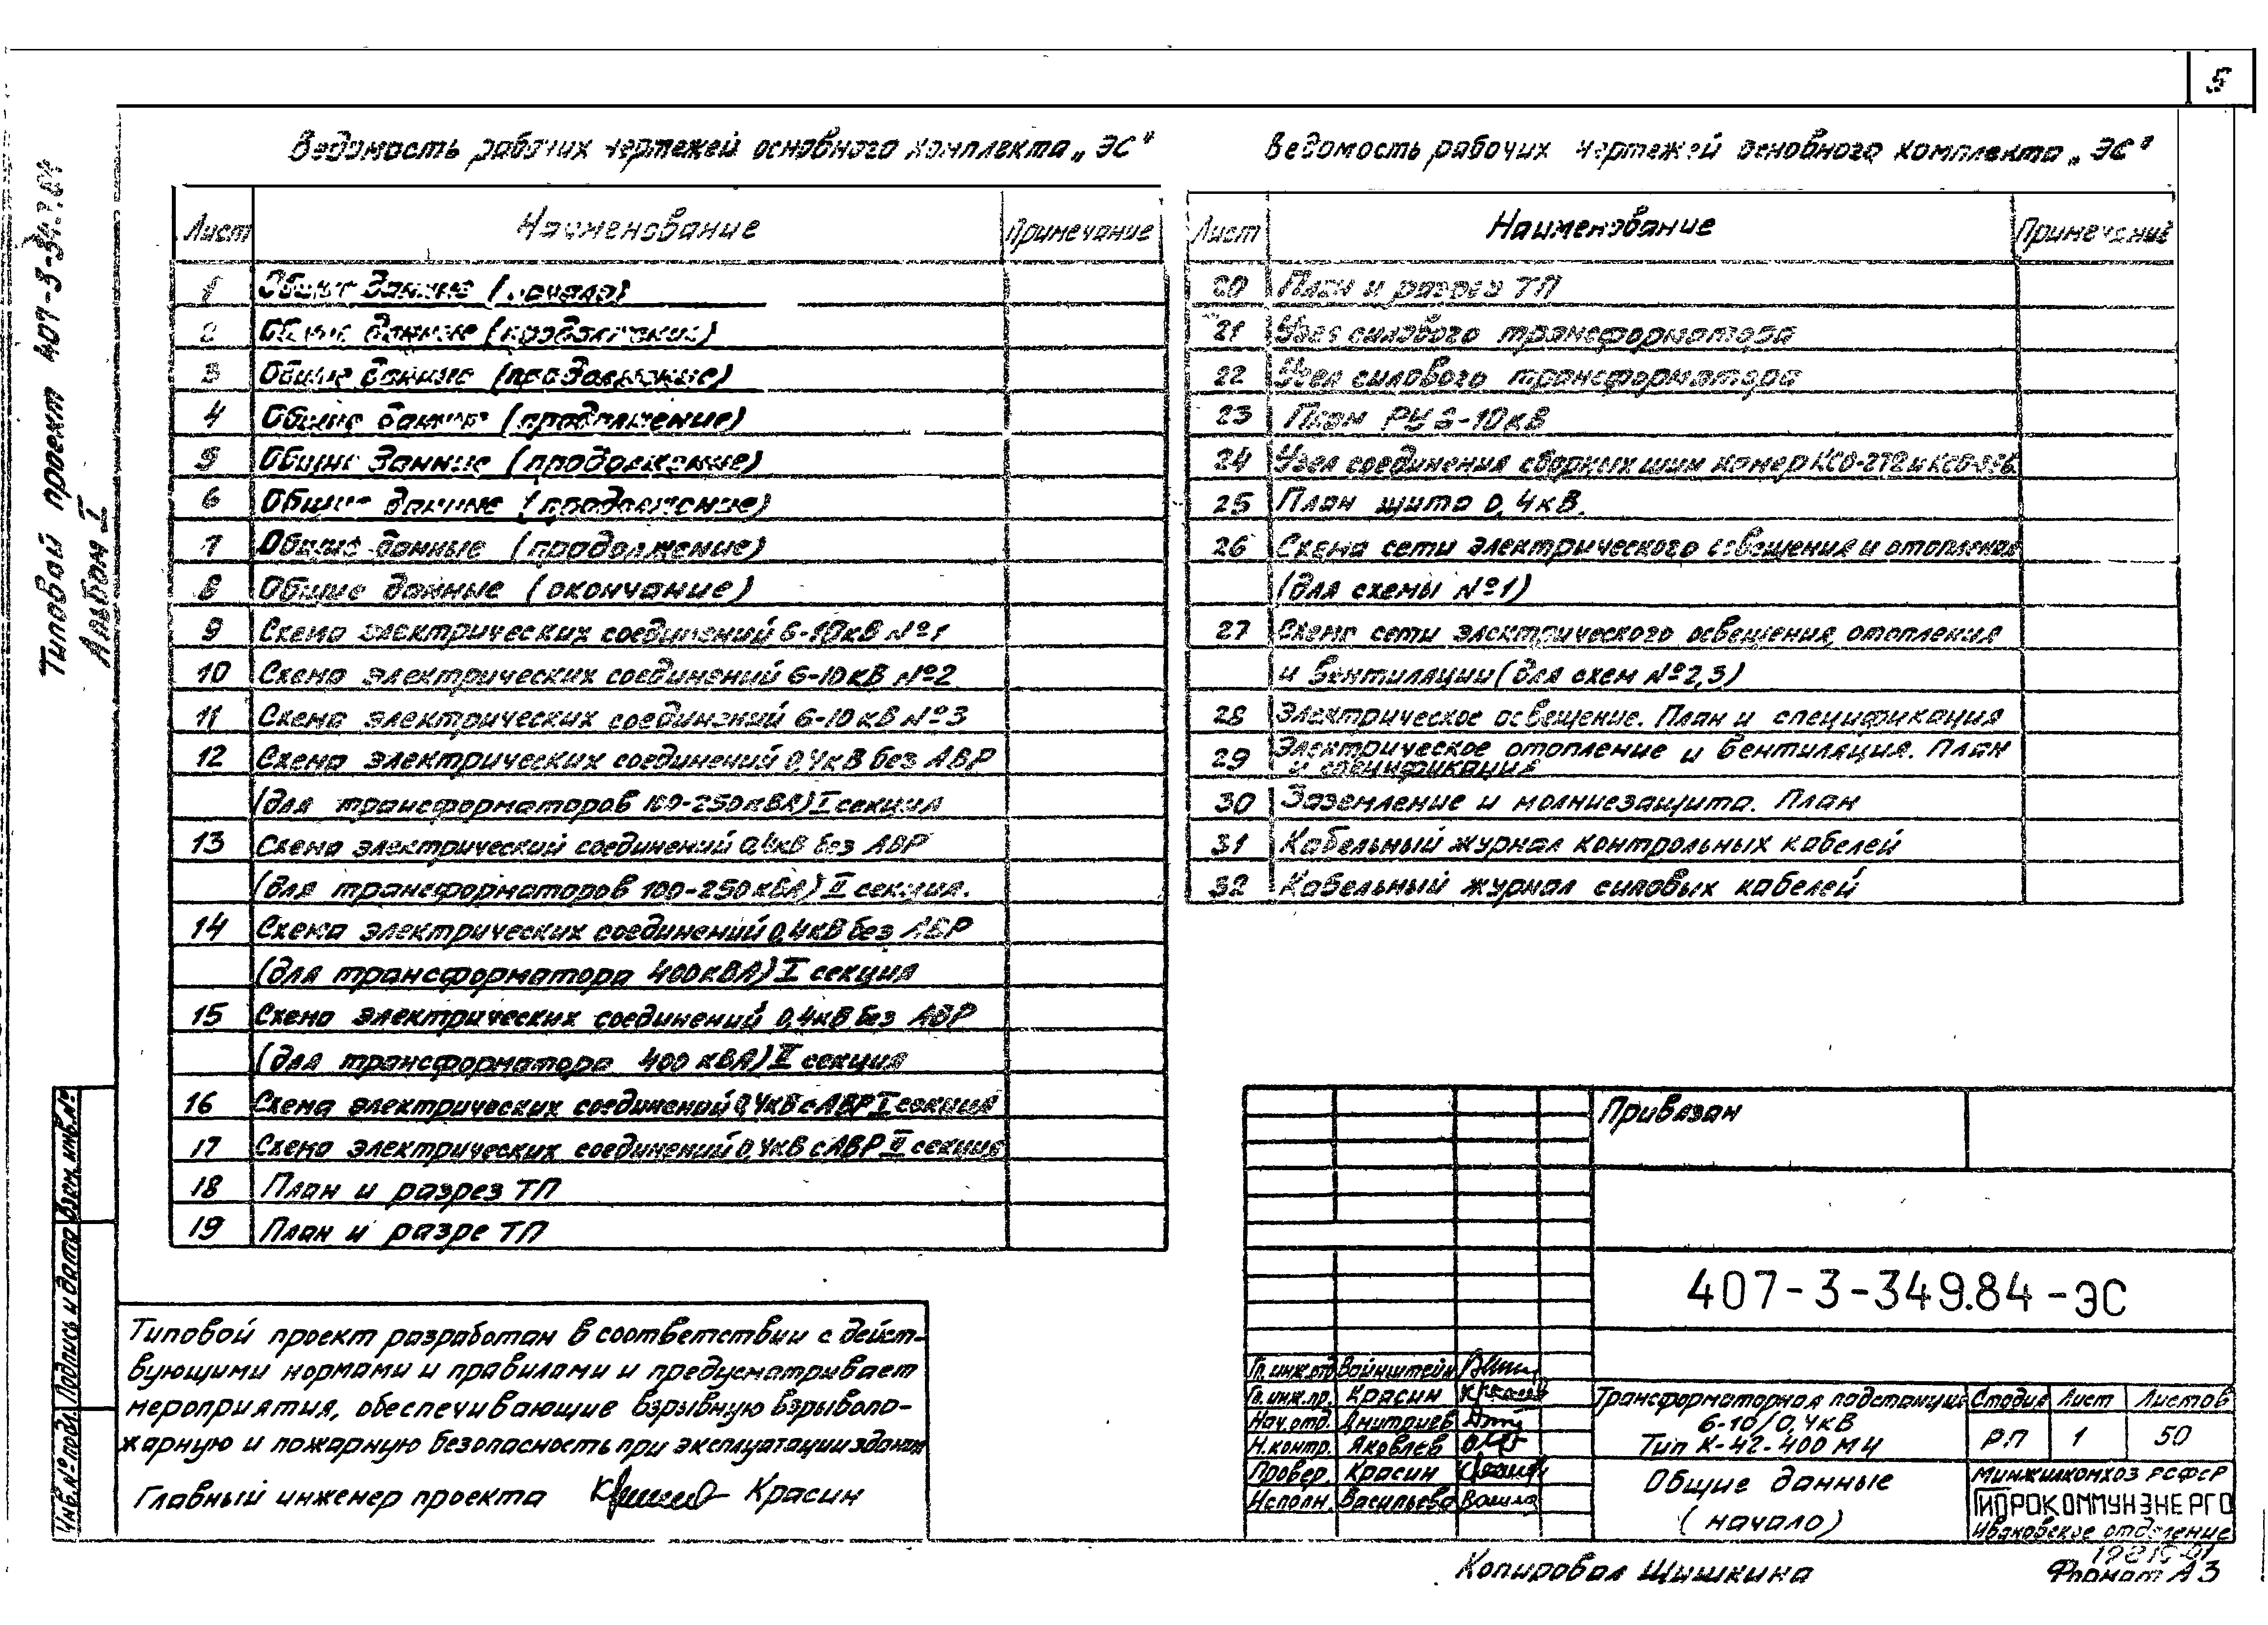 5
Типовой проект 407-3-349.84
Альбом I
Ведомость рабочих чертежей основного комплекта „ЭС"
Лист Наименование Примечание
1 Общие данные (начало)
2 Общие данные (продолжение)
3 Общие данные (продолжение)
4 Общие данные (продолжение)
5 Общие данные (продолжение)
6 Общие данные (продолжение)
7 Общие данные (продолжение)
8 Общие данные (окончание)
9 Схема электрических соединений 6-10кВ №1
10 Схема электрических соединений 6-10кВ №2
11 Схема электрических соединений 6-10кВ №3
12 Схема электрических соединений 0,4кВ без АВР
(для трансформаторов 100-250кВА) I секция
13 Схема электрический соединений 0,4кВ без АВР
(для трансформаторов 100-250кВА) II секция.
14 Схема электрических соединений 0,4кВ без АВР
(для трансформатора 400кВА) I секция
15 Схема электрических соединений 0,4кВ без АВР
(для трансформатора 400 кВА) II секция
16 Схема электрических соединений 0,4кВ с АВР I секция
17 Схема электрических соединений 0,4кВ с АВР II секция
18 План и разрез ТП
19 План и разре ТП
Ведомость рабочих чертежей основного комплекта „ЭС"
Лист Наименование Примечание
20 План и разрез ТП
21 Узел силового трансформатора
22 Узел силового трансформатора
23 План РУ 6-10кВ
24 Узел соединения сборных шин камер КСО-272 и
25 План щита 0,4кВ.
26 Схема сети электрического освещения и отопления
(для схемы №1)
27 Схема сети электрического освещения, отопления
и вентиляции (для схем №2,3)
28 Электрическое освещение. План и спецификация
29 Электрическое отопление и вентиляция. План
и спецификация
30 Заземление и молниезащита. План
31 Кабельный журнал контрольных кабелей
32 Кабельный журнал силовых кабелей
Типовой проект разработан в соответствии с дейст-
вующими нормами и правилами и предусматривает
мероприятия, обеспечивающие взрывную взрывопо-
жарную и пожарную безопасность при эксплуатации здания
Главный инженер проекта Красин
Инв.№ подл. Подпись и дата Взам. инв.№
Привязан
407-3-349.84-ЭС
Гл. инж.отд Вайнштейн
Гл.инж.пр. Красин
Нач.отд. Дмитриев
Н.контр. Яковлев
Провер. Красин
Исполн. Васильева
Трансформаторная подстанция
6-10/0,4кВ
Тип К-42-400 М4
Стадия Лист Листов
РП 1 50
Общие данные
(начало)
МИНЖИЛКОМХОЗ РСФСР
ГИПРОКОММУНЭНЕРГО
Ивановское отделение
Копировал Шишкина
Формат А3